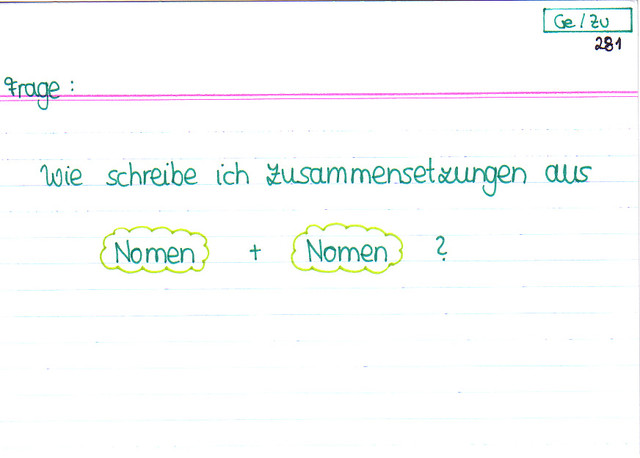 Ge / Zu
281
Frage :
Wie schreibe ich Zusammensetzungen aus
Nomen + Nomen ?